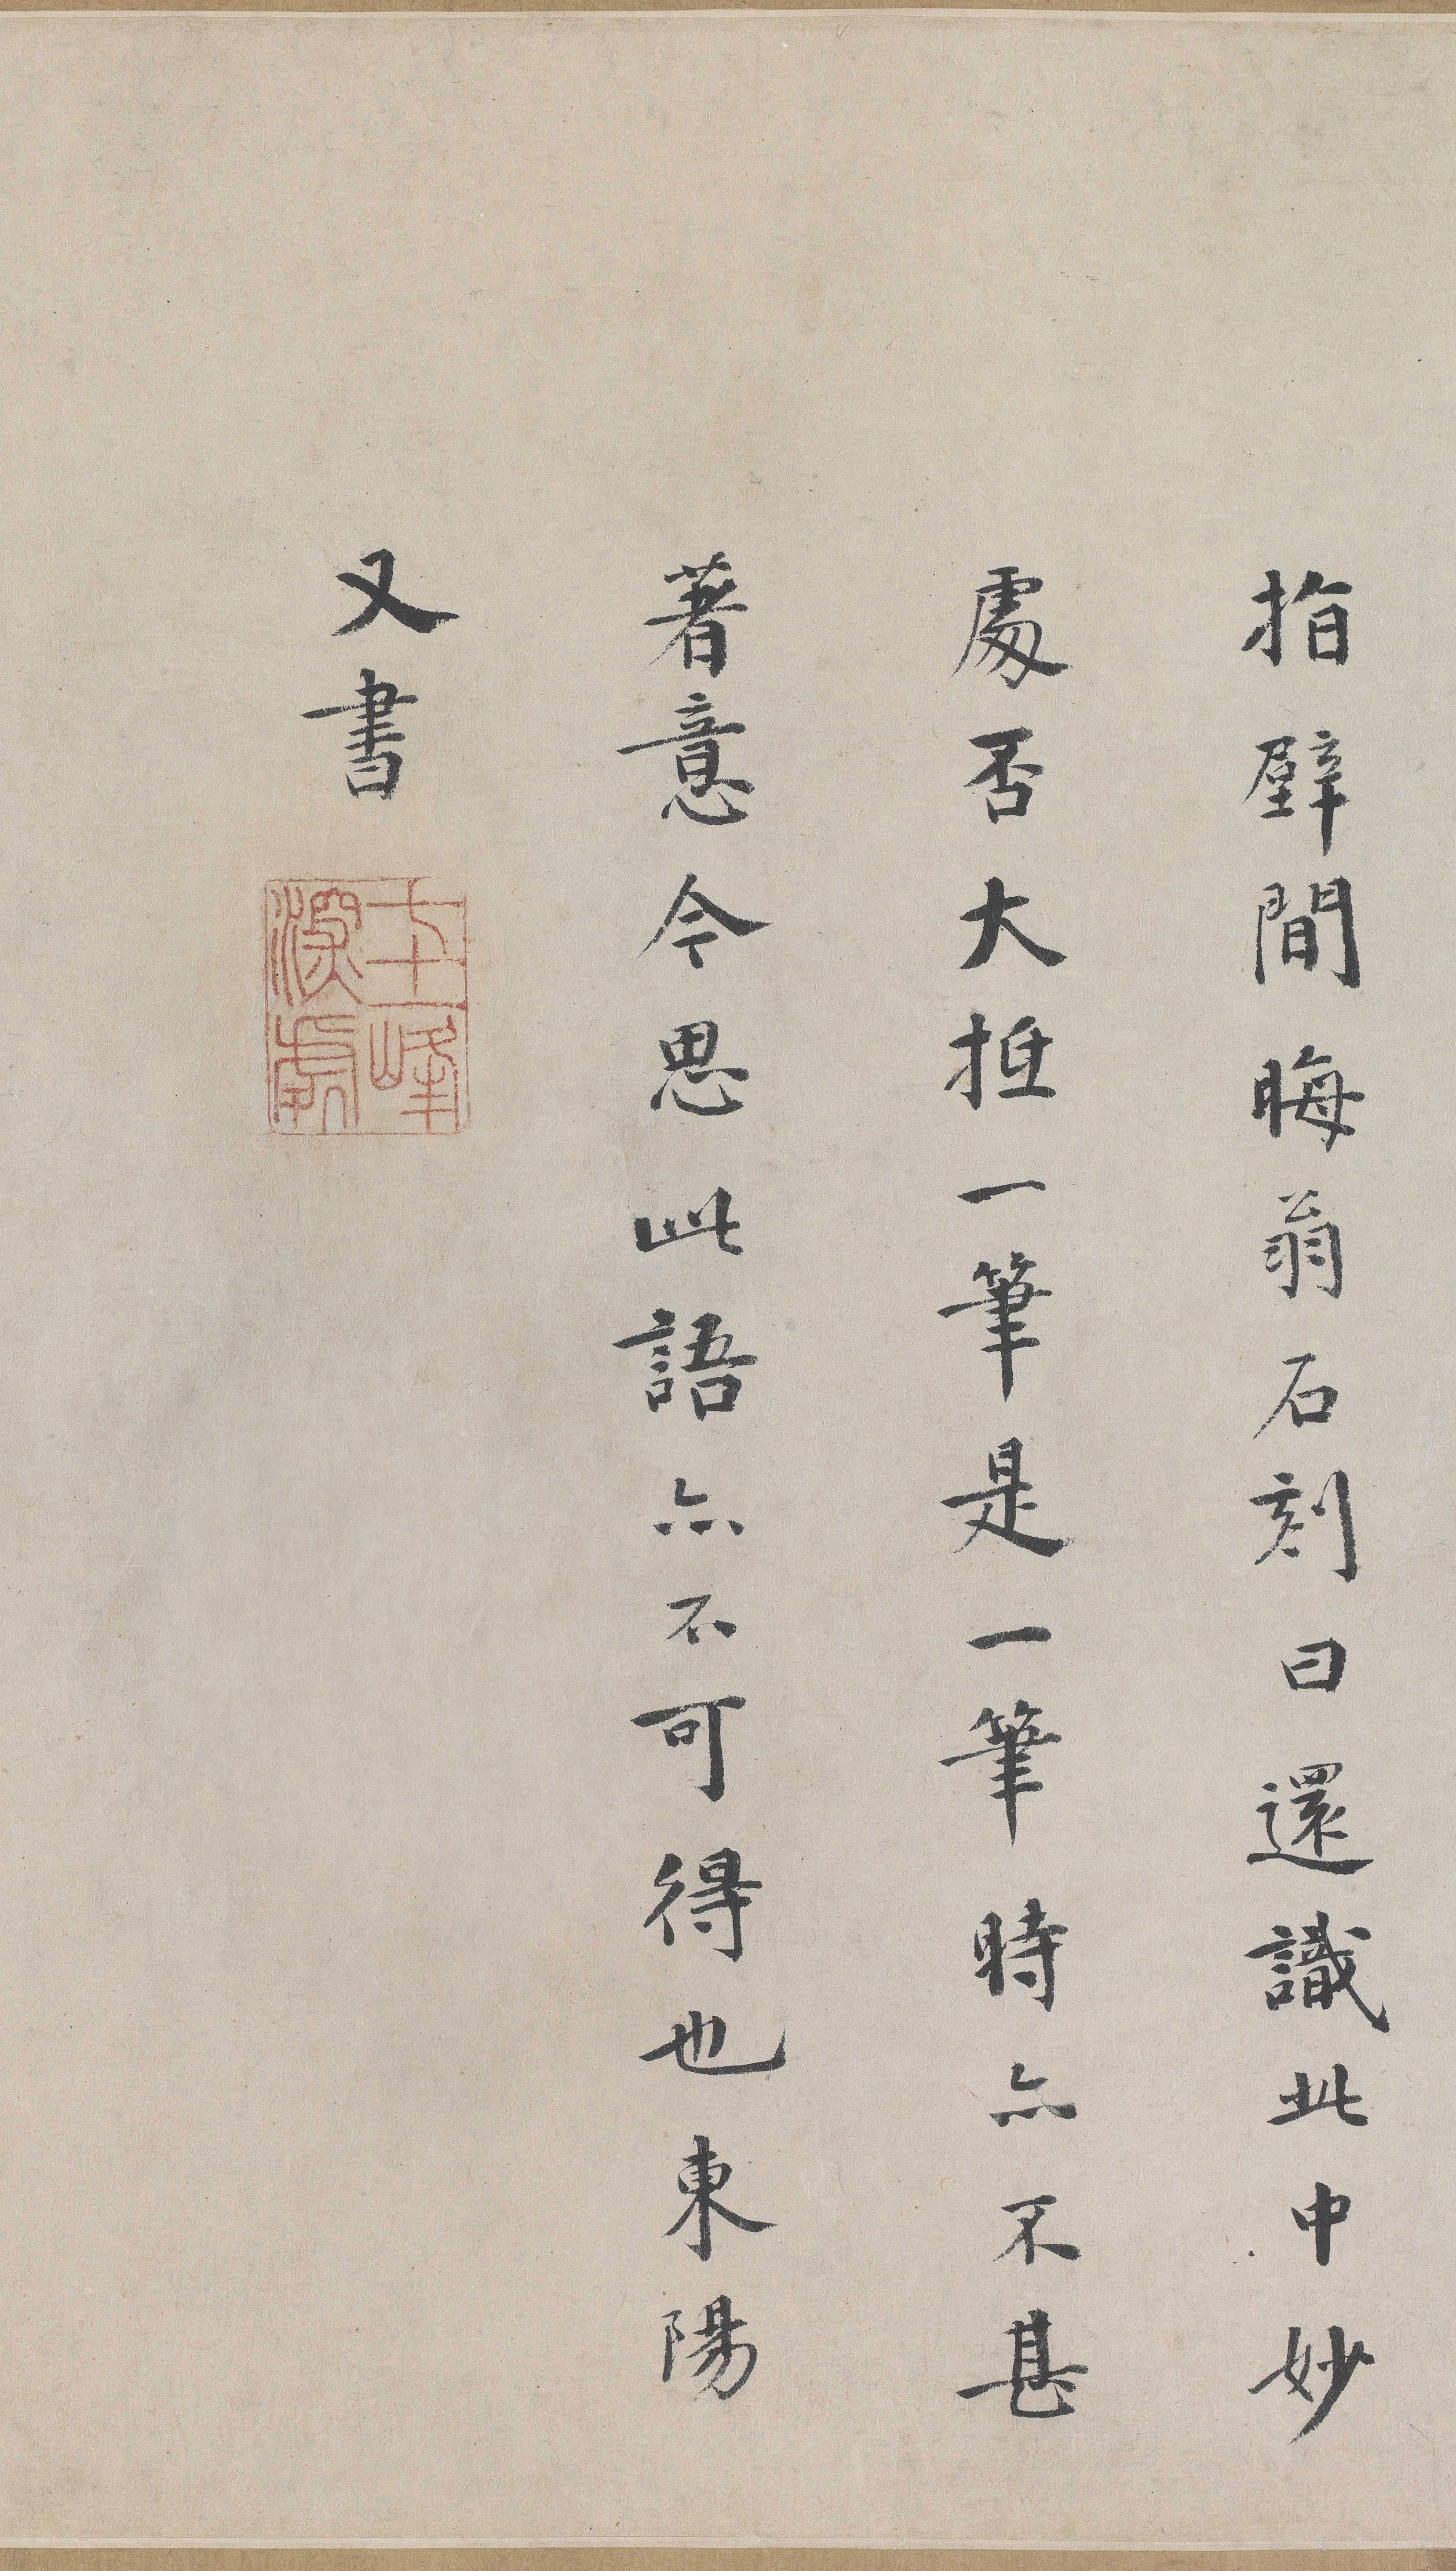 指壁間晦翁石刻曰還識此中妙
處否大抵一筆是一筆時亦不甚
著意今思此語亦不可得也東陽
又書
七十
峰
深處